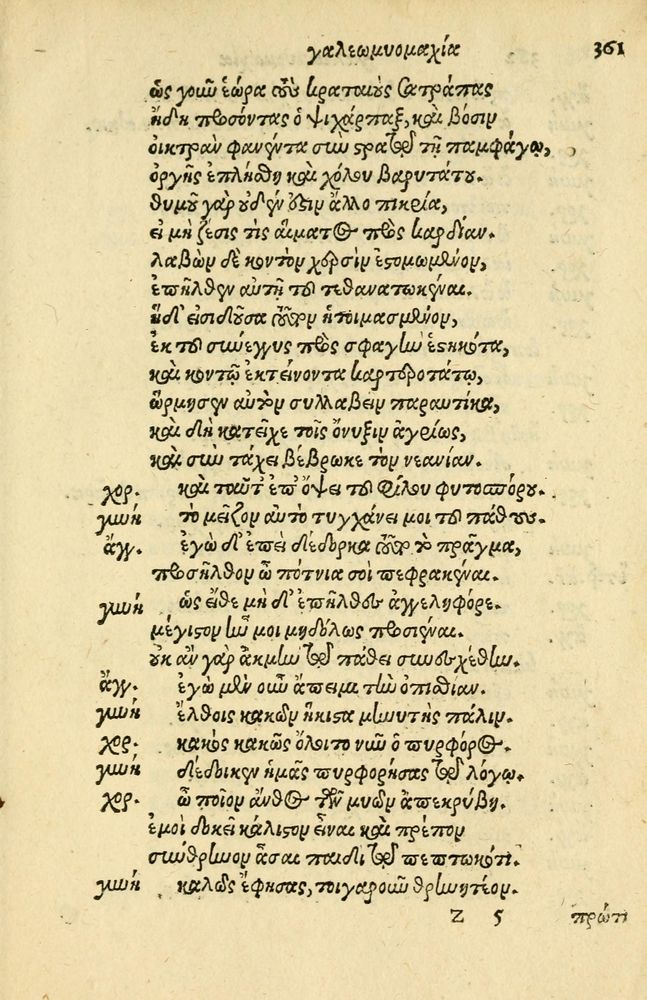 γαλεωμυομαχία 361
ὡς γοῦν ἑώρα τοὺς κρατίστους σατράπας
ἤδη πεσόντας ὁ ψιχάρπαξ, καὶ βόσιν
οἰκτρὰν φανέντα σὺν στρατῷ τῇ παμφάγῳ,
ὀργῆς ἐπλήσθη καὶ χόλου βαρυτάτου.
θυμοῦ γὰρ οὐδέν ἐστιν ἄλλο πικρία,
εἰ μὴ ζέσις τὶς αἵματος πρὸς καρδίαν.
λαβὼν δὲ κοντὸν χερσὶν ἐστομωμένον,
ἐπῆλθεν αὐτῇ τοῦ τεθανατωκέναι.
ἡ δ' εἰσιδοῦσα τοῦτον ἡτοιμασμένον,
ἐκ τοῦ σύνεγγυς πρὸς σφαγὴν ἑστηκότα,
καὶ κοντῷ ἐκτείνοντα καρτερωτάτῳ,
ὥρμησεν αὐτὸν συλλαβεῖν παραυτίκα,
καὶ δὴ κατεῖχε τοῖς ὄνυξιν ἀγρίως,
καὶ σὺν τάχει βέβρωκε τὸν νεανίαν.
χορ. καὶ ταῦτ' ἐπ' ὄψει τοῦ φίλου φυτοσπόρου.
γυνή τὸ μεῖζον αὐτὸ τυγχάνει μοι τοῦ πάθους.
ἄγγ. ἐγὼ δ' ἐπεὶ δέδορκα τοῦτο τὸ πρᾶγμα,
προσῆλθον ὦ πότνια σοὶ πεφρακέναι.
γυνή ὡς εἴθε μὴ δ' ἐπῆλθες ἀγγεληφόρε.
μέγιστον ἦν μοι μηδόλως προσιέναι.
οὐκ ἂν γὰρ ἀκμὴν τῷ πάθει συνεσχέθην.
ἄγγ. ἐγὼ μὲν οὖν ἄπειμι τὴν ὀπισθίαν.
γυνή ἔλθοις κακῶν ἥκιστα μηνυτὴς πάλιν.
χορ. κακὸς κακῶς ὄλοιτο νῦν ὁ πυρφόρος.
γυνή δέδοικεν ἡμᾶς πυρφορήσας τῷ λόγῳ.
χορ. ὦ ποῖον ἄνθος τῶν μυῶν ἀπεκρύβη.
ἐμοὶ δοκεῖ κάλιστον εἶναι καὶ πρέπον
σὺν θρῆνον ᾆσαι παιδὶ τῷ πεπτωκότι.
γυνή καλῶς ἔφησας, τοιγαροῦν θρηνητέον.
Z 5 πρῶτι